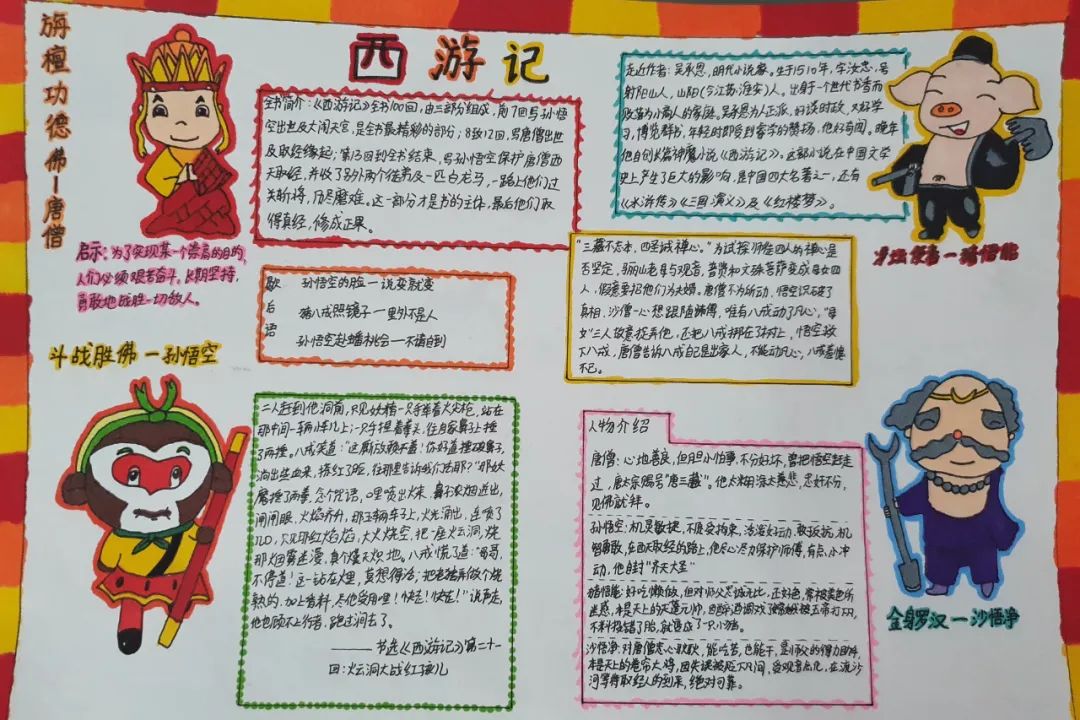 西游记
旃檀功德佛—唐僧
全书简介:《西游记》全书100回,由三部分组成,前7回写孙悟
空出世及大闹天宫,是全书最精彩的部分;8致12回,写唐僧出世
及取经缘起;第13回到全书结束,写孙悟空保护唐僧西
天取经,并收了另外两个徒弟及一匹白龙马,一路上他们过
关斩将,历尽磨难。这一部分才是书的主体,最后他们取
得真经,修成正果。
走近作者:吴承恩,明代小说家。生于1510年,字汝忠,号
射阳山人,山阳(今江苏淮安)人。出身于一个世代书香而
败落为小商人的家庭。吴承恩为人正派,好谈时政,又好学
习,博览群书,年轻时即受到督学的赞扬。他好奇闻,晚年
他自创长篇神魔小说《西游记》。这部小说在中国文学
史上产生了巨大的影响,是中国四大名著之一,还有
《水浒传》《三国演义》及《红楼梦》。
启示:为了实现某一个崇高的目的,
人们必须艰苦奋斗,长期坚持,
勇敢地战胜一切敌人。
歇 孙悟空的脸—说变就变
后 猪八戒照镜子—里外不是人
语 孙悟空赴蟠桃会—不请自到
净坛使者—猪悟能
"三藏不忘本,四圣试禅心。"为试探师徒四人的禅心是
否坚定,骊山老母与观音,普贤和文殊菩萨变成母女四
人,假意要招他们为夫婿。唐僧不为所动,悟空识破了
真相,沙僧一心想跟随师傅,唯有八戒动了凡心,"母
女"三人故意捉弄他,还把八戒绑在树上,悟空救
下八戒,唐僧告诉八戒自己是出家人,不能动凡心,八戒羞愧
不已。
斗战胜佛—孙悟空
二人赶到他洞前,只见妖精一只手举着火尖枪,站在
那中间一辆小车儿上;一只手捏着拳头,往自家鼻子上捶
了两捶。八戒笑道:"这厮放赖不羞!你好道捶破鼻子,
淌出些血来,搽红了脸,往那里告我们去耶?"那妖
魔捶了两拳,念个咒语,口里喷出火来,鼻子浓烟迸出,
闸闸眼,火焰齐升,那五辆车子上,火光涌出,连喷了
几口,只见那红焰焰,大火烧空,把一座火云洞,烧
那烟雾迷漫,真个熯天炽地。八戒慌了道:"哥哥,
不停当!这一站在火里,莫想得活;把老猪弄做个烧
熟的,加上香料,尽他受用哩!快走!快走!"说声走,
他也顾不得行者,跑过涧去了。
——— 节选《西游记》第二十一
回:火云洞大战红孩儿
人物介绍
唐僧:心地善良,但胆小怕事,不分好坏,曾把悟空赶走
过,唐太宗赐号"唐三藏"。他大难临头慈悲,忠奸不分,
见佛就拜。
孙悟空:机灵敏捷,不愿受拘束,活泼好动,敢反抗,机
智勇敢,在西天取经的路上,他尽心尽力保护师傅,有点小冲
动,他自封"齐天大圣"
猪悟能:好吃懒做,但对师父忠诚无比,还好色,常被美色所
迷惑,本是天上的天蓬元帅,因醉酒调戏了嫦娥被玉帝打下凡,
不料投错了胎,就变成了一只小猪。
沙悟净:对唐僧忠心耿耿,能吃苦,也能干,是师父的得力助手,
本是天上的卷帘大将,因失误被贬下凡间,受观音点化,在流沙
河等待取经人的到来,绝对可靠。
金身罗汉—沙悟净